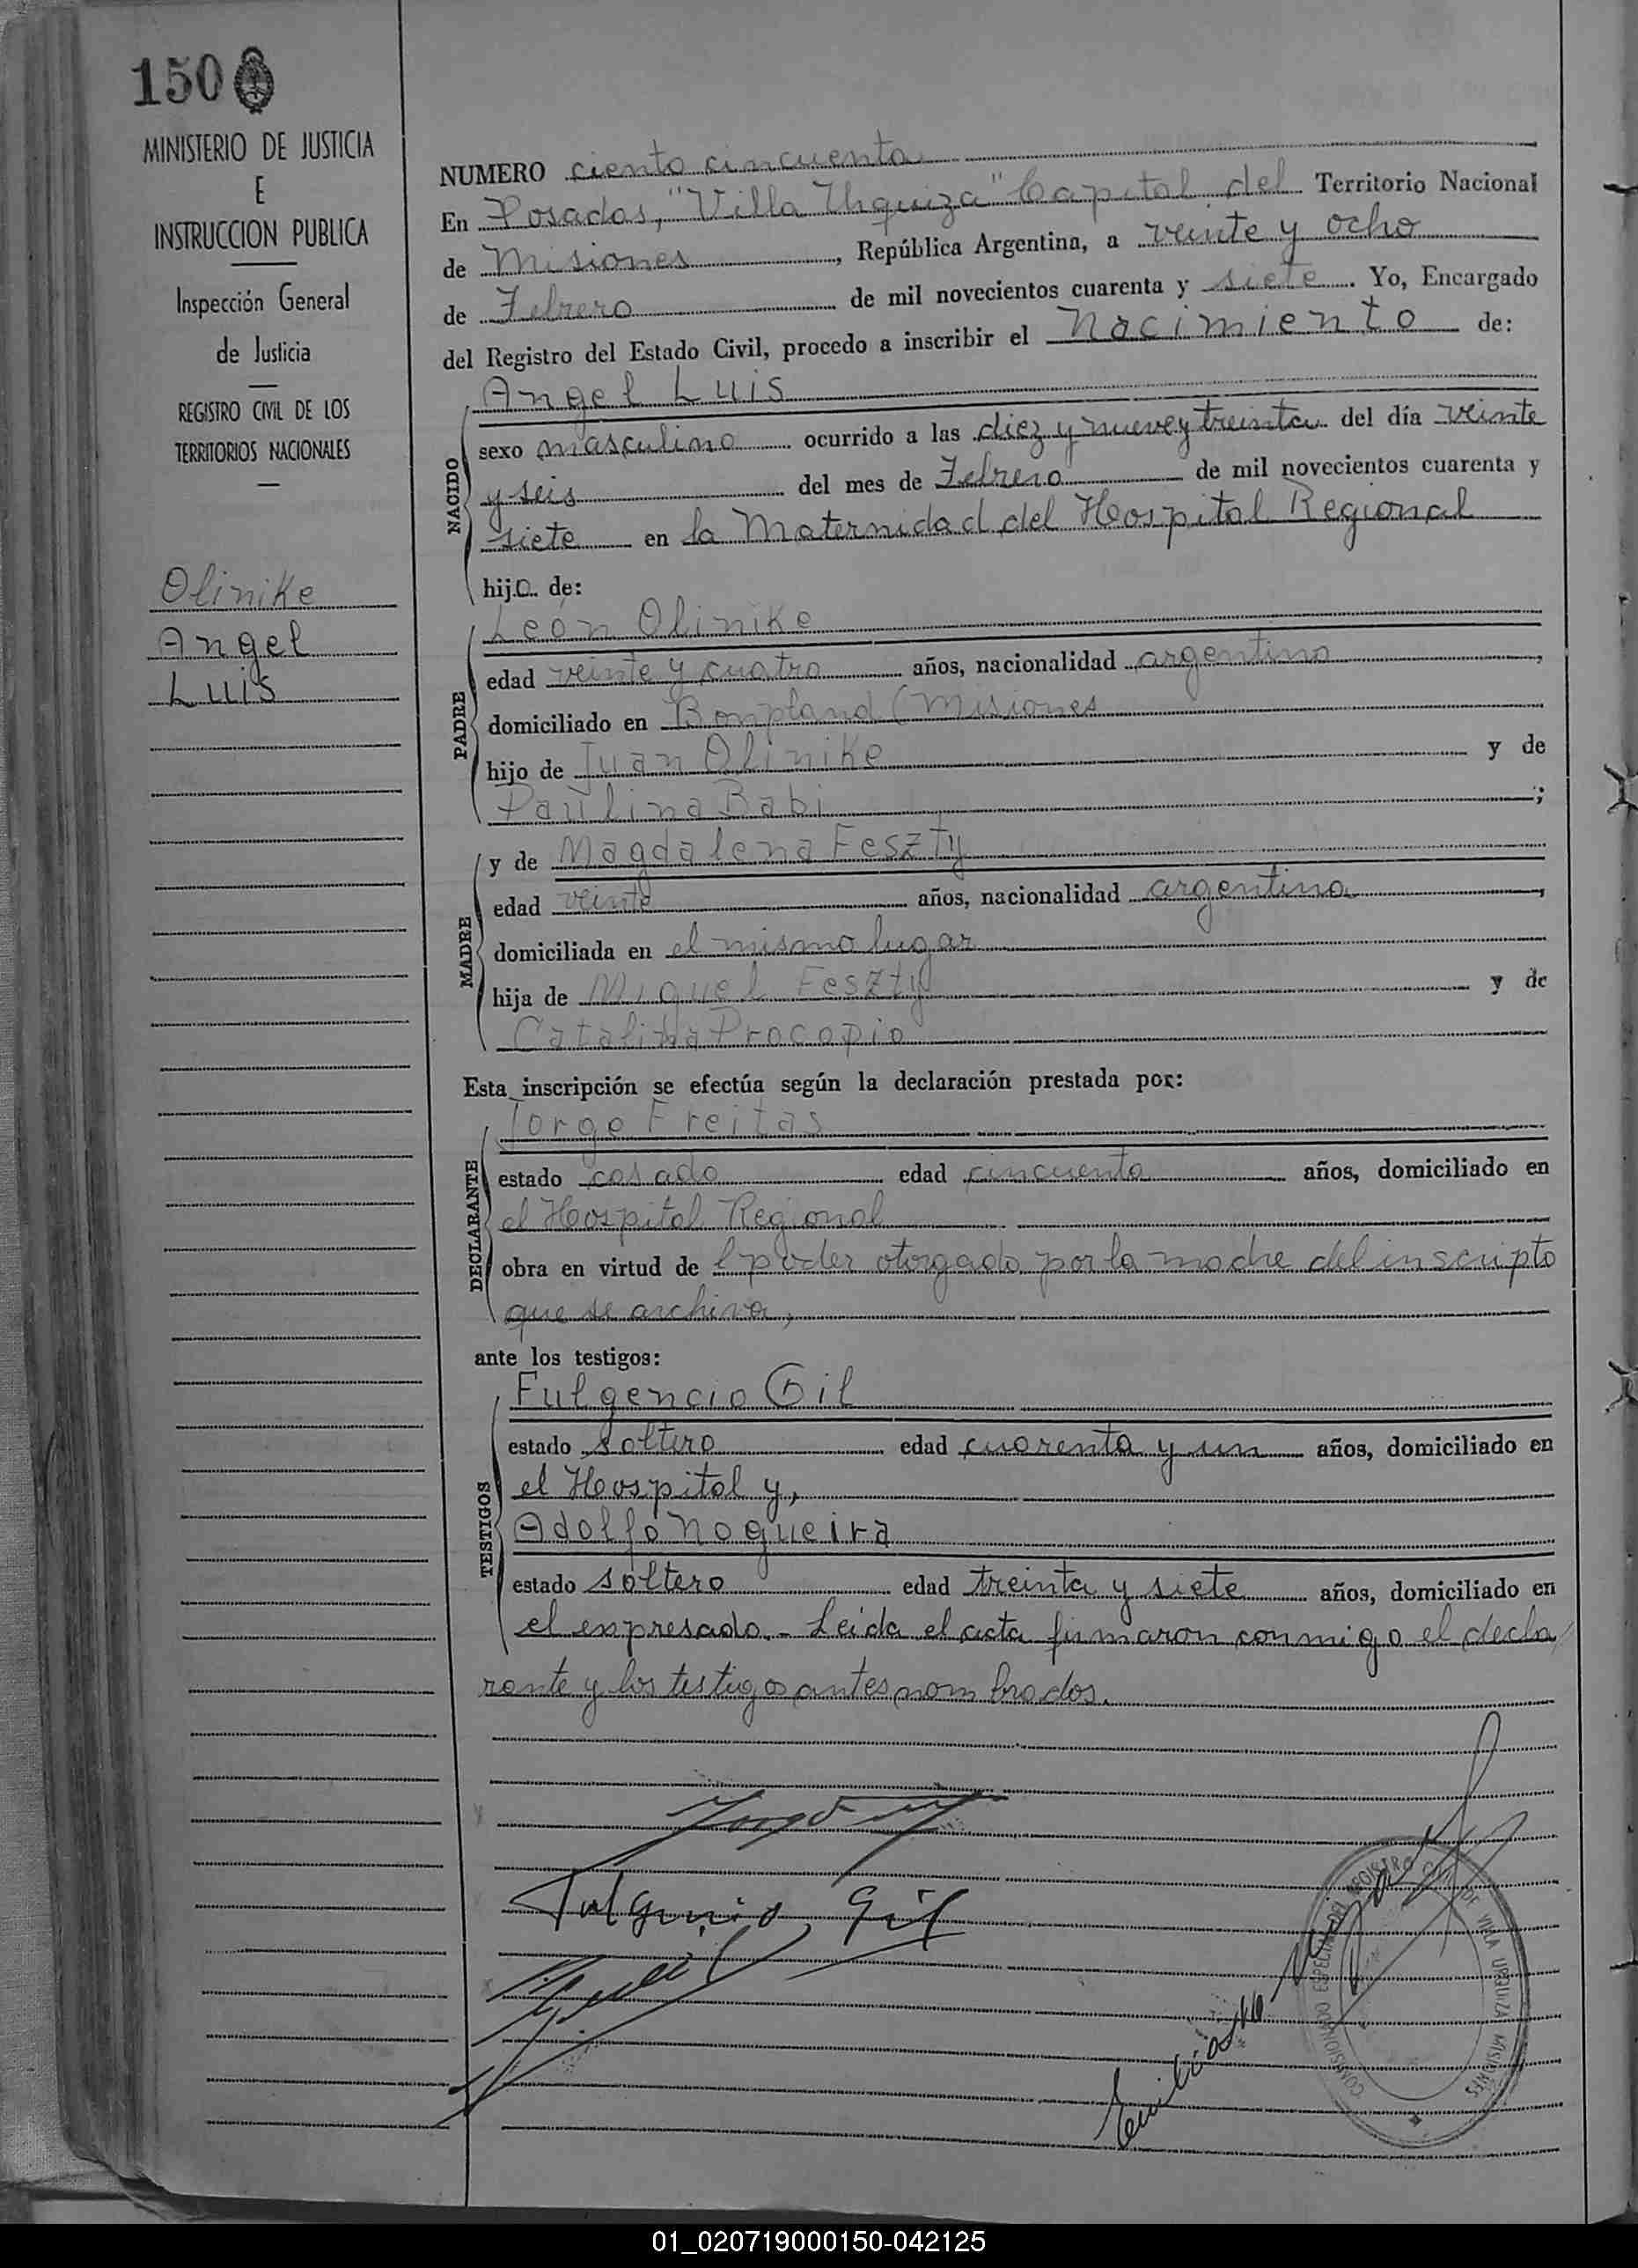 150
MINISTERIO DE JUSTICIA
E
INSTRUCCION PUBLICA
Inspección General
de Justicia
REGISTRO CIVIL DE LOS
TERRITORIOS NACIONALES
Olinike
Angel
Luis
NUMERO ciento cincuenta
En Posadas, "Villa Urquiza" Capital del Territorio Nacional
de Misiones, República Argentina, a veinte y ocho
de Febrero de mil novecientos cuarenta y siete. Yo, Encargado
del Registro del Estado Civil, procedo a inscribir el Nacimiento de:
NACIDO
Angel Luis
sexo masculino ocurrido a las diez y nueve y treinta del día veinte
y seis del mes de Febrero de mil novecientos cuarenta y
siete en la Maternidad del Hospital Regional
hijo de:
PADRE
León Olinike
edad veinte y cuatro años, nacionalidad argentino,
domiciliado en Bonpland (Misiones
hijo de Juan Olinike y de
Paulina Babi;
MADRE
y de Magdalena Feszty
edad veinte años, nacionalidad argentina,
domiciliada en el mismo lugar
hija de Miguel Feszty y de
Catalina Procopio
Esta inscripción se efectúa según la declaración prestada por:
DECLARANTE
Jorge Freitas
estado casado edad cincuenta años, domiciliado en
el Hospital Regional
obra en virtud de l poder otorgado por la madre del inscripto
que se archiva,
ante los testigos:
TESTIGOS
Fulgencio Gil
estado soltero edad cuarenta y un años, domiciliado en
el Hospital y,
Adolfo Nogueira
estado soltero edad treinta y siete años, domiciliado en
el expresado.- Leida el acta firmaron conmigo el decla
rante y los testigos antes nombrados.
Fulgencio Gil
COMISIONADO ESPECIAL DEL REGISTRO CIVIL DE VILLA URQUIZA MISIONES
01_020719000150-042125